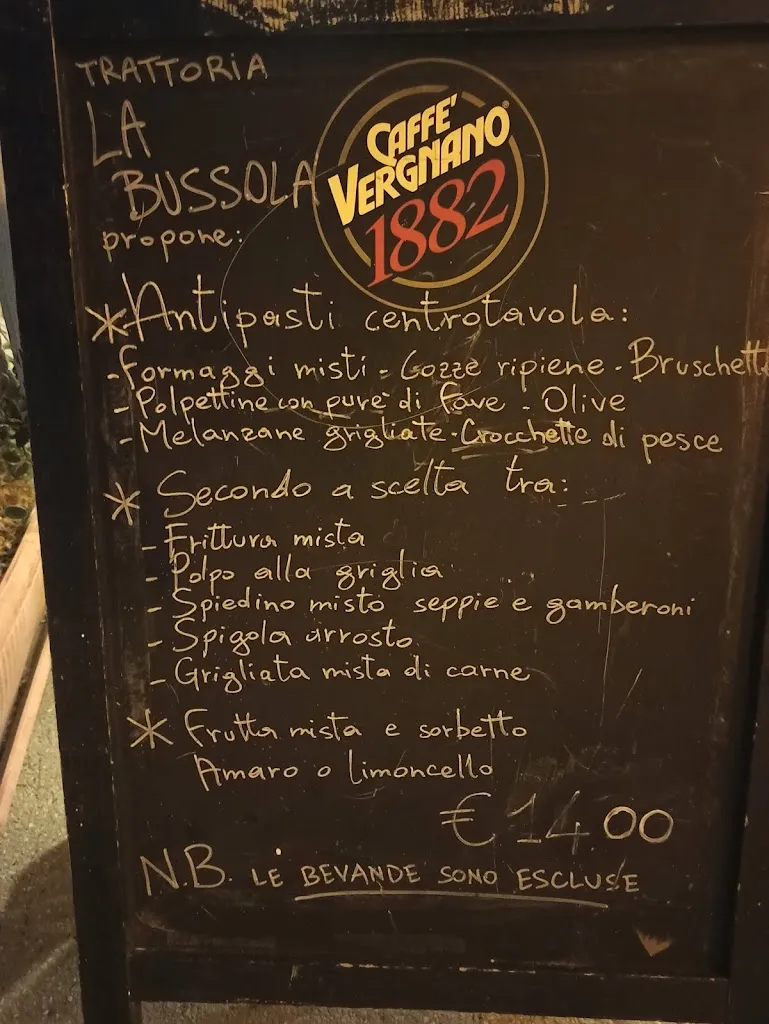 TRATTORIA
LA
BUSSOLA
propone:
CAFFE'
VERGNANO®
1882
* Antipasti centrotavola:
- Formaggi misti - Cozze ripiene - Bruschette
- Polpettine con purè di fave - Olive
- Melanzane grigliate - Crocchette di pesce
* Secondo a scelta tra:
- Frittura mista
- Polpo alla griglia
- Spiedino misto seppie e gamberoni
- Spigola arrosto
- Grigliata mista di carne
* Frutta mista e sorbetto
Amaro o limoncello
€ 14.00
N.B. LE BEVANDE SONO ESCLUSE